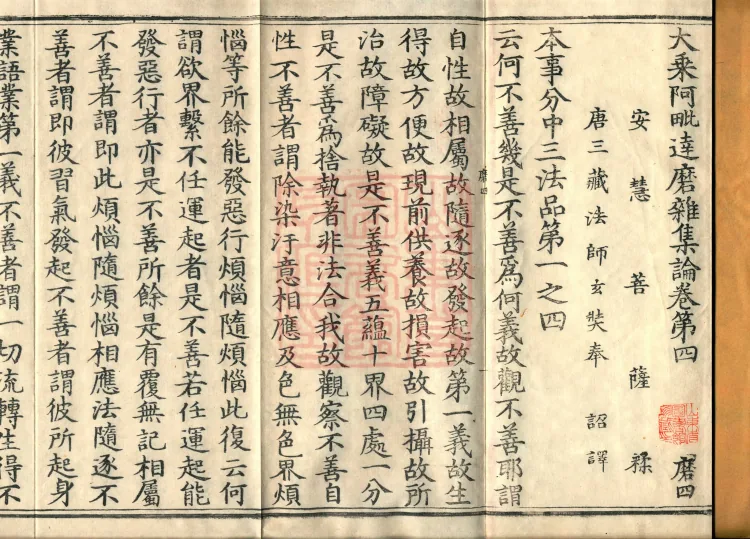 大乘阿毗達磨雜集論卷第四 磨四
安慧菩薩糅
唐三藏法師玄奘奉 詔譯
本事分中三法品第一之四
云何不善幾是不善爲何義故觀不善耶謂
自性故相屬故隨逐故發起故第一義故生
得故方便故現前供養故損害故引攝故所
治故障礙故是不善義五蘊十界四處一分
是不善爲捨執著非法合我故觀察不善自
性不善者謂除染汙意相應及色無色界煩
惱等所餘能發惡行煩惱隨煩惱此復云何
謂欲界繫不任運起者是不善若任運起能
發惡行者亦是不善所餘是有覆無記相屬
不善者謂即此煩惱隨煩惱相應法隨逐不
善者謂即彼習氣發起不善者謂彼所起身
業語業第一義不善者謂一切流轉生得不